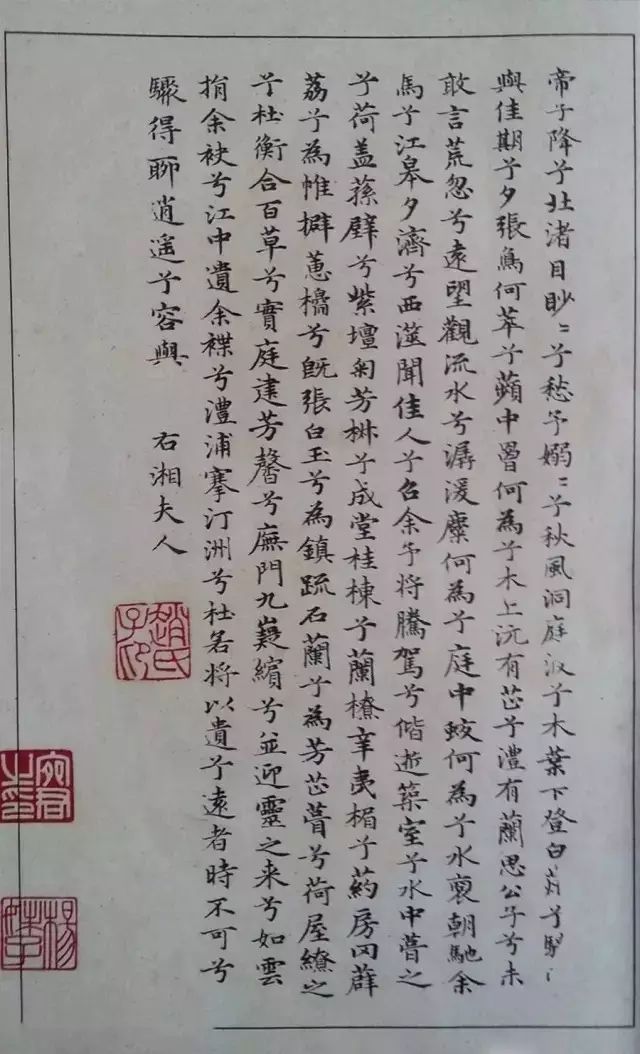 帝子降兮北渚目眇〻兮愁予嫋〻兮秋風洞庭波兮木葉下登白薠兮騁
與佳期兮夕張鳥何萃兮蘋中罾何為兮木上沅有芷兮澧有蘭思公子兮未
敢言荒忽兮遠望觀流水兮潺湲麋何為兮庭中蛟何為兮水裔朝馳余
馬兮江皋夕濟兮西澨聞佳人兮召余予將騰駕兮偕逝築室兮水中葺之
兮荷盖蓀壁兮紫壇匊芳椒兮成堂桂棟兮蘭橑辛夷楣兮葯房罔薜
荔兮為帷擗蕙櫋兮既張白玉兮為鎮疏石蘭兮為芳芷葺兮荷屋繚之
兮杜衡合百草兮實庭建芳馨兮廡門九嶷繽兮並迎靈之来兮如雲
捐余袂兮江中遺余褋兮澧浦搴汀洲兮杜若將以遺兮遠者時不可兮
驟得聊逍遥兮容與 右湘夫人
趙氏